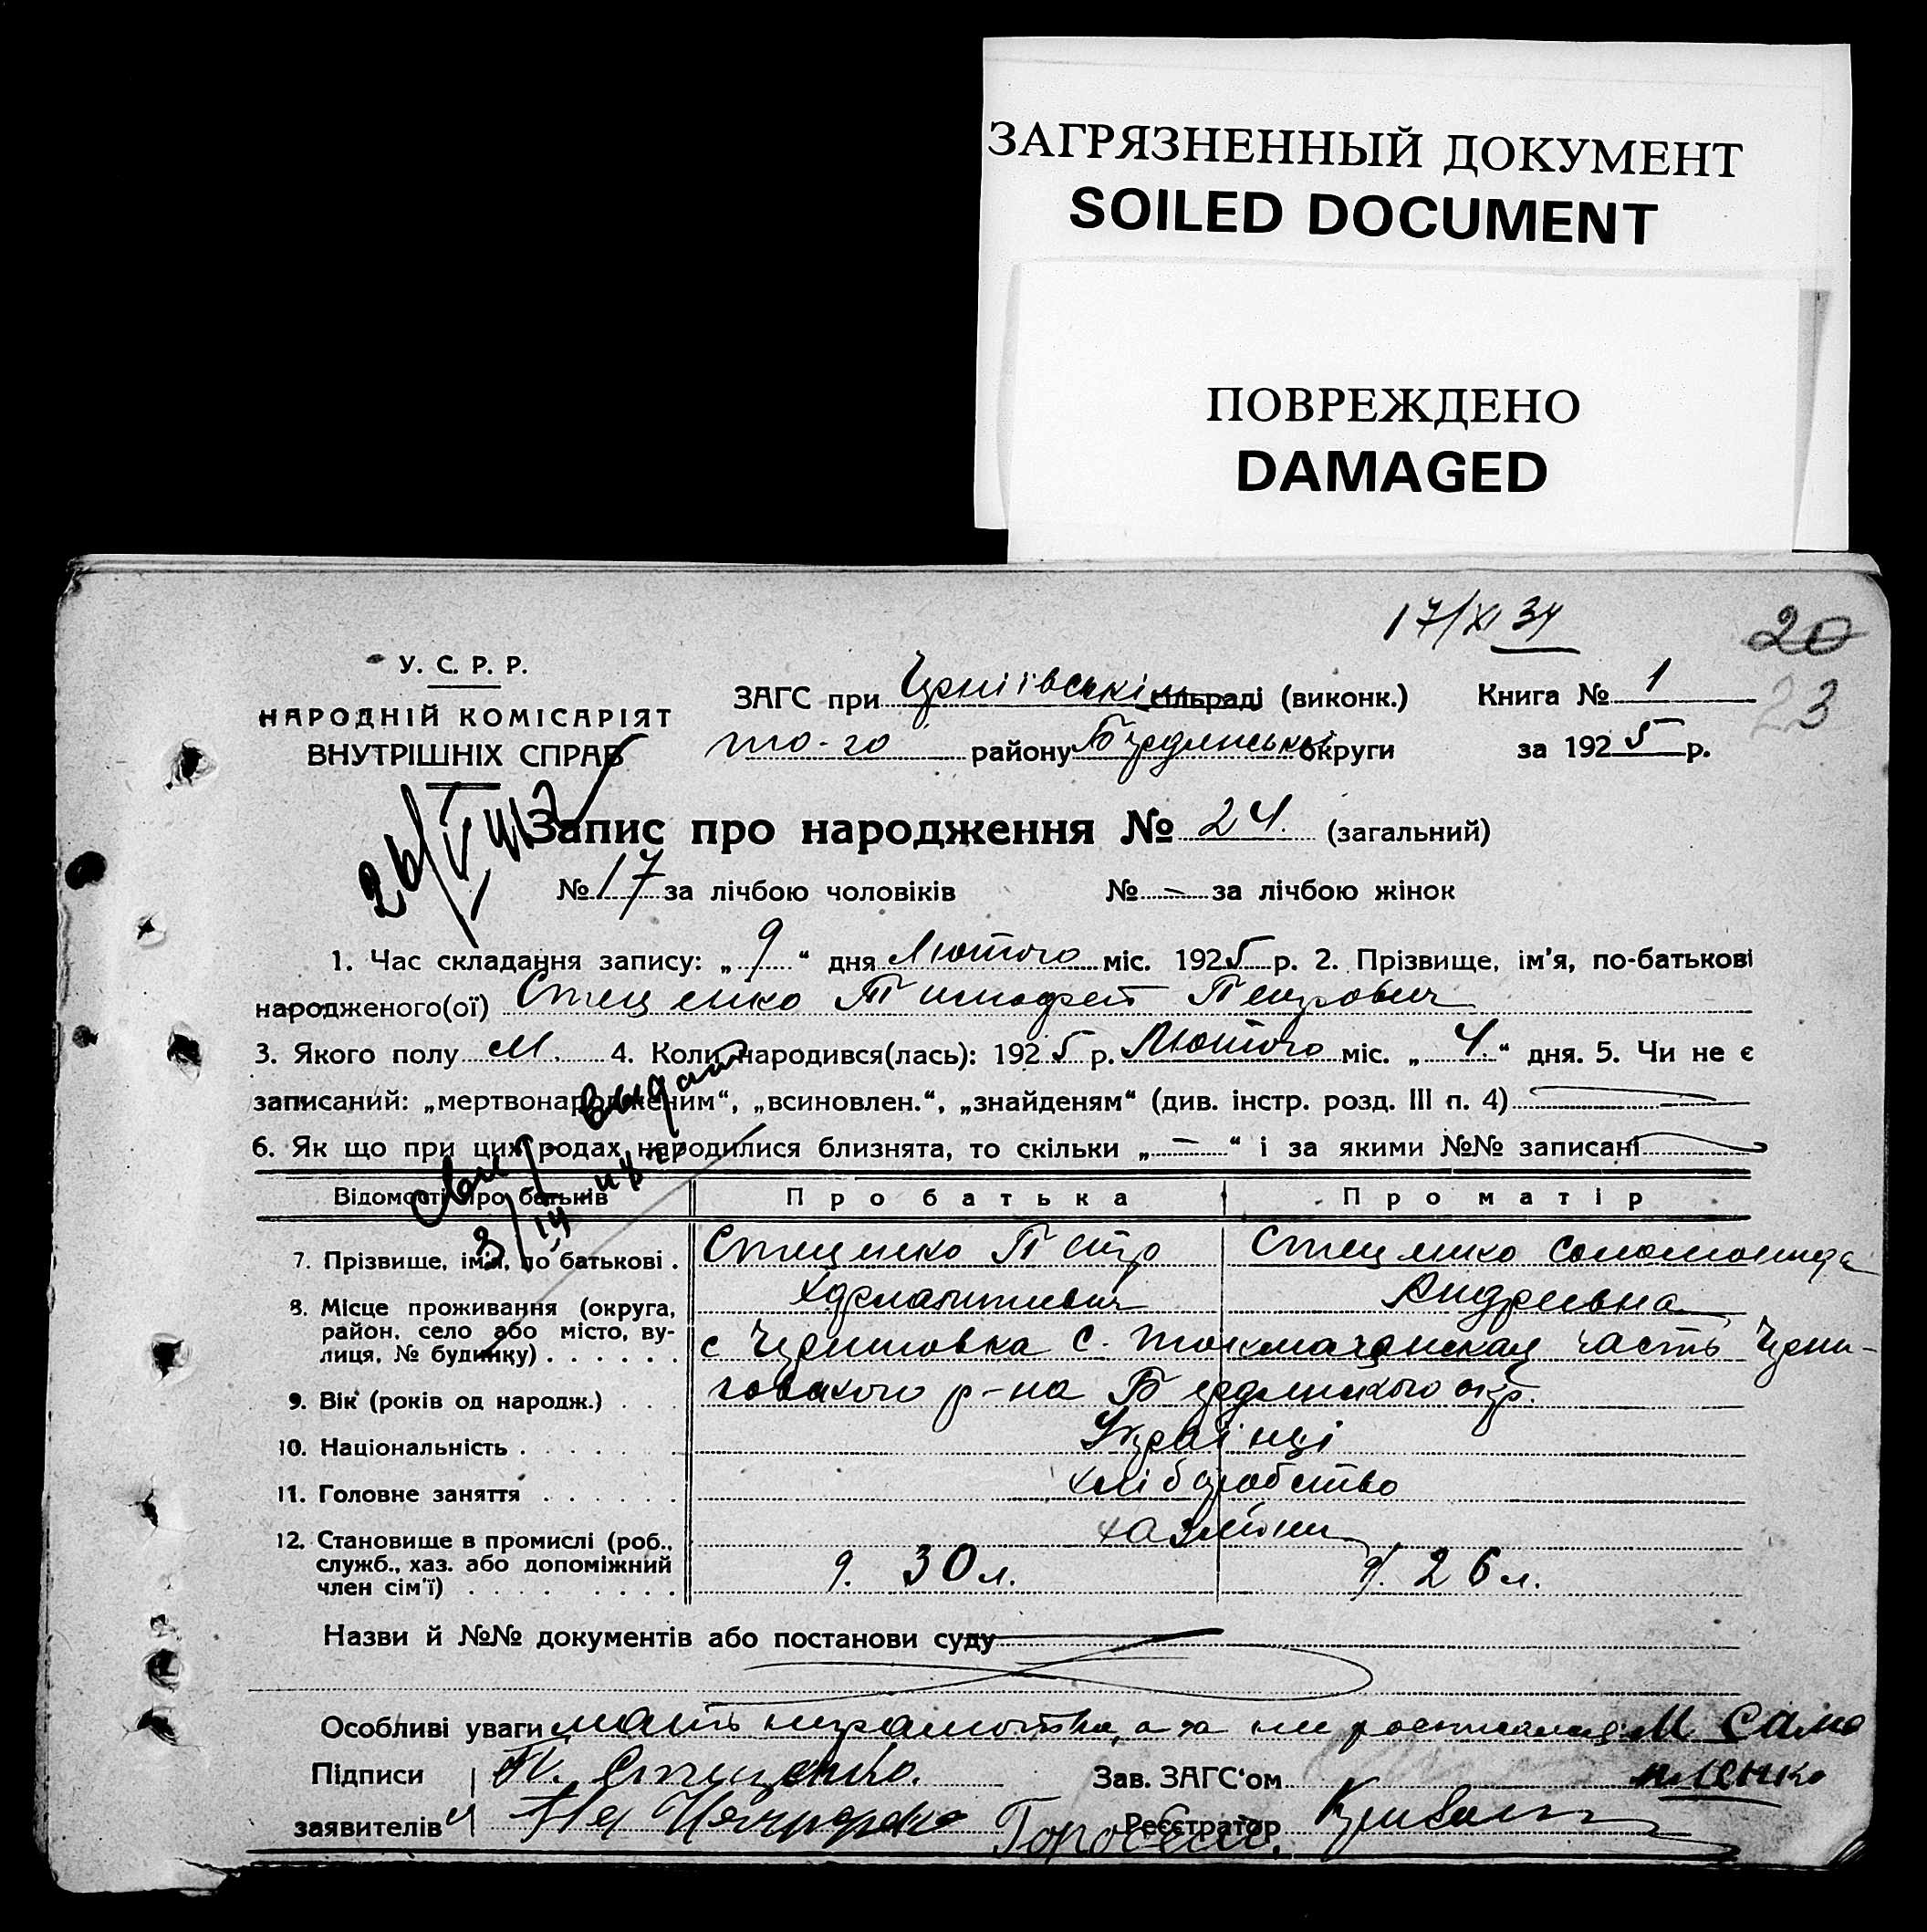 ЗАГРЯЗНЕННЫЙ ДОКУМЕНТ
SOILED DOCUMENT
ПОВРЕЖДЕНО
DAMAGED
17/XI 34
20
23
У. С. Р. Р.
НАРОДНІЙ КОМІСАРІЯТ
ВНУТРІШНІХ СПРАВ
ЗАГС при сільраді (виконк.) Книга № 1
то-го району округи за 1925 р.
Запис про народження № 24. (загальний)
№ 17 за лічбою чоловіків № – за лічбою жінок
1. Час складання запису: „ 9 “ дня Лютого міс. 1925 р. 2. Прізвище, ім'я, по-батькові
народженого(ої) Стеценко Тимофей Петрович
3. Якого полу М. 4. Коли народився(лась): 1925 р. Лютого міс. „ 4. “ дня. 5. Чи не є
записаний: „мертвонародженим“, „всиновлен.“, „знайденям“ (див. інстр. розд. III п. 4)
6. Як що при цих родах народилися близнята, то скільки „ – “ і за якими №№ записані
Відомості про батьків Про батька Про матір
7. Прізвище, ім'я, по батькові . Стеценко Петр Стеценко Соломонида
Андреевна
8. Місце проживання (округа,
район, село або місто, ву-
лиця, № будинку) . . . . . . с Черниговка С. Токмачанская часть Черни-
9. Вік (років од народж.) . . . говского р-на Бердянского окр.
10. Національність . . . . . . Українці
11. Головне заняття . . . . . . хліборобство
12. Становище в промислі (роб.,
служб., хаз. або допоміжний
член сім'ї) . . . . . . . . . 9. 30 л. 9. 26 л.
Назви й №№ документів або постанови суду
Особливі уваги мать неграмотна, а за М Само
йленко
Підписи П. Стеценко. Зав. ЗАГС'ом
заявителів Реєстратор